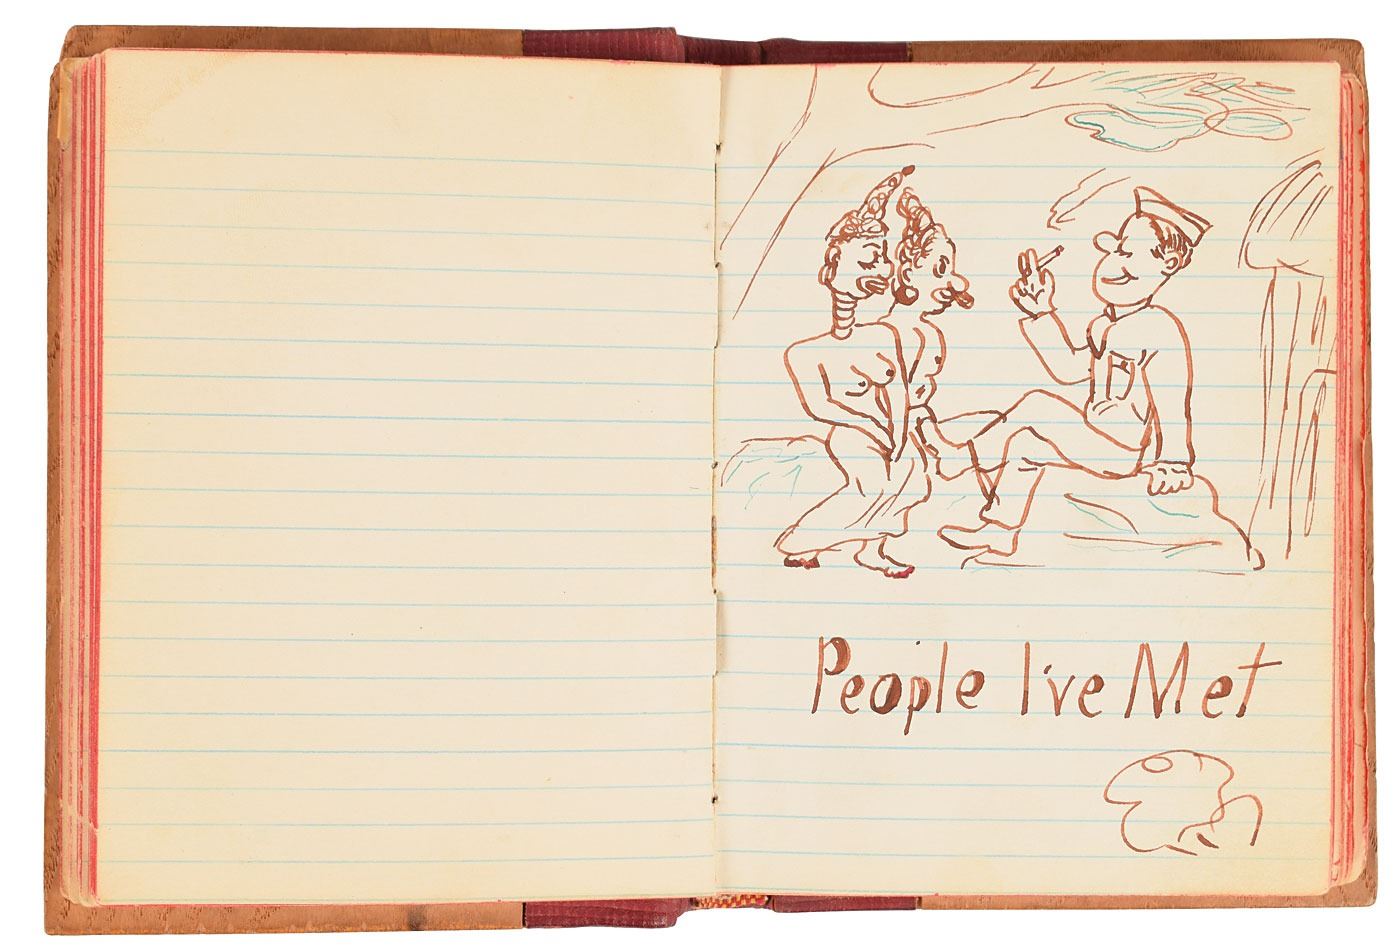 People I've Met